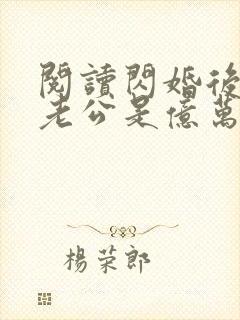 閱讀閃婚後
老公是億萬
楊荣郎